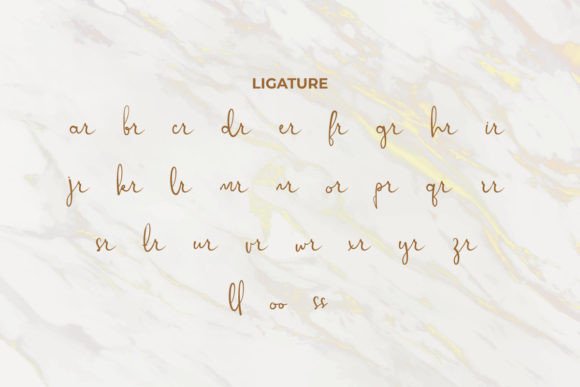 LIGATURE
ar br cr dr er fr gr hr ir
jr kr lr mr nr or pr qr rr
sr tr ur vr wr xr yr zr
ll oo ss